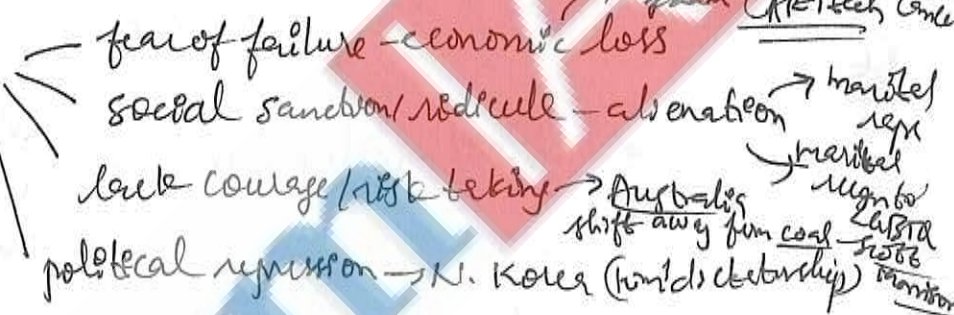 CRETech
fear of failure - economic loss
social sanction/ridicule - alienation → marital rape
→ marital rights to LGBTQ
lack courage/risk taking → Australia
shift away from coal - Scott Morrison
political repression → N. Korea (Kim's dictatorship)